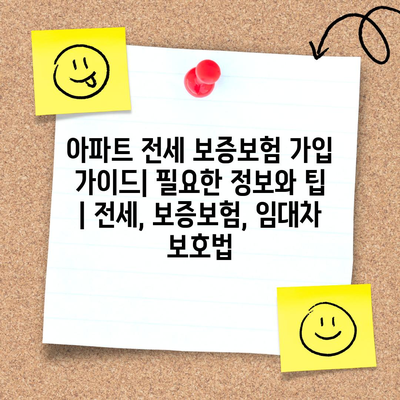 아파트 전세 보증보험 가입
가이드| 필요한 정보와 팁
| 전세, 보증보험, 임대차
보호법